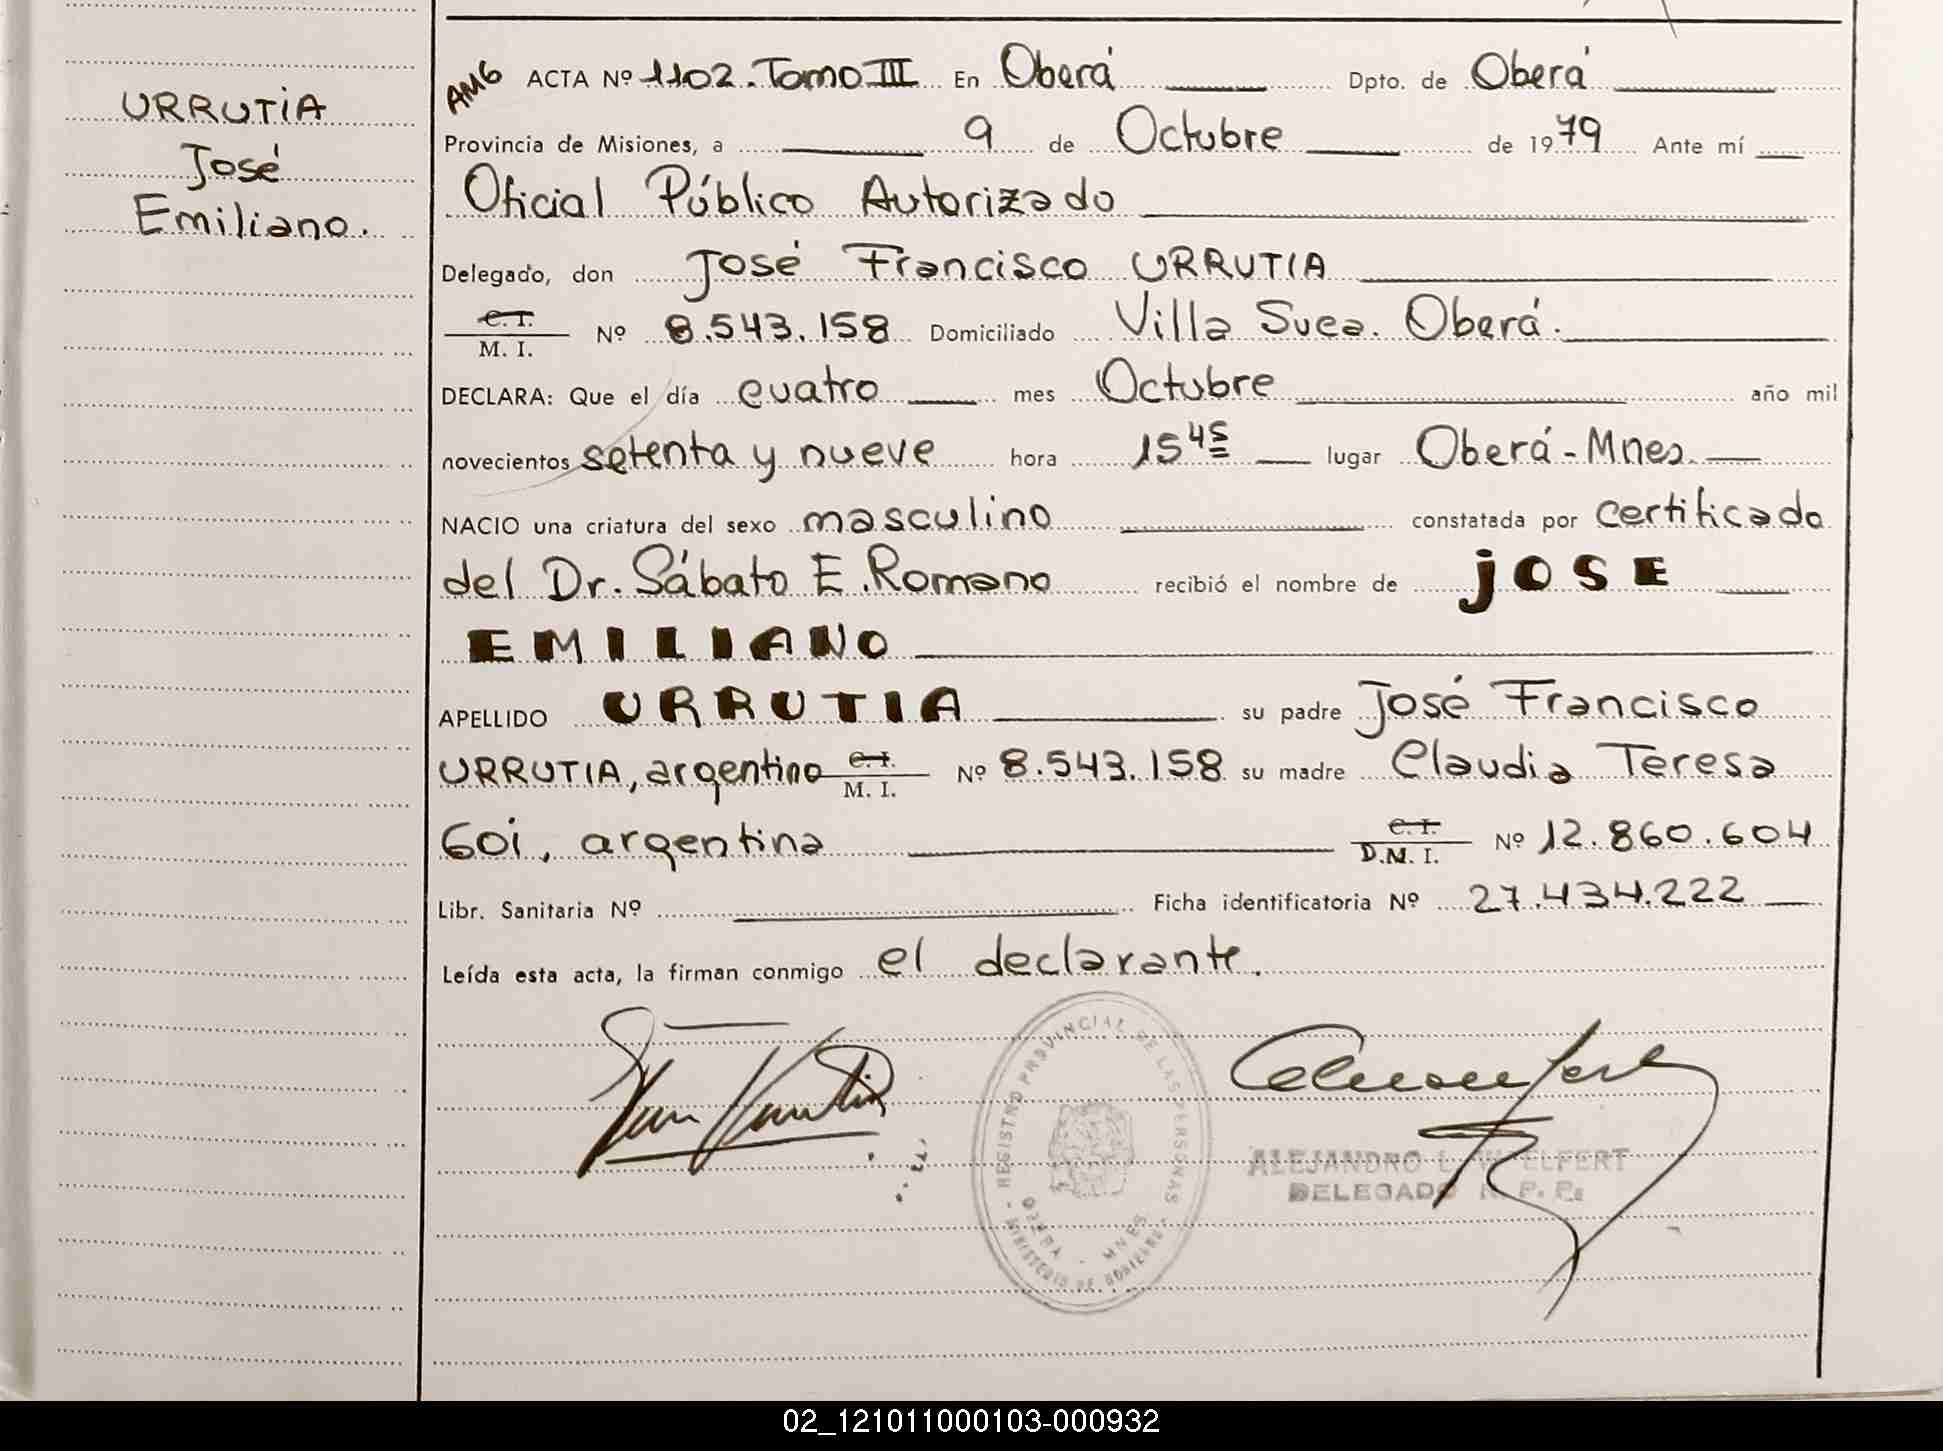 URRUTIA
José
Emiliano.
AMG ACTA Nº 1102. Tomo III En Oberá Dpto. de Oberá
Provincia de Misiones, a 9 de Octubre de 1979 Ante mí
Oficial Público Autorizado
Delegado, don José Francisco URRUTIA
C. I.
M. I. Nº 8.543.158 Domiciliado Villa Suea. Oberá.
DECLARA: Que el día cuatro mes Octubre año mil
novecientos setenta y nueve hora 15 45 lugar Oberá-Mnes.
NACIO una criatura del sexo masculino constatada por certificado
del Dr. Sábato E. Romano recibió el nombre de JOSE
EMILIANO
APELLIDO URRUTIA su padre José Francisco
URRUTIA, argentino C. I. M. I. Nº 8.543.158 su madre Claudia Teresa
GOi, argentina C. I. D.N. I. Nº 12.860.604
Libr. Sanitaria Nº Ficha identificatoria Nº 27.434.222
Leída esta acta, la firman conmigo el declarante.
REGISTRO PROVINCIAL DE LAS PERSONAS
OBERA - MNES
MINISTERIO DE GOBIERNO
ALEJANDRO L. WELFERT
DELEGADO R. P. P.
02_121011000103-000932